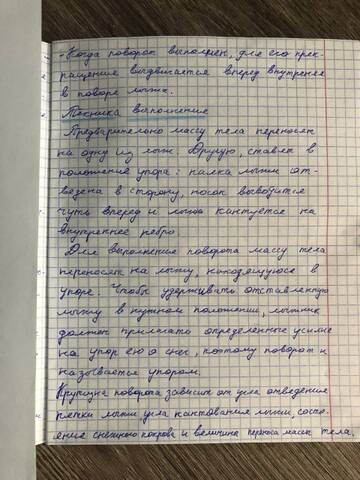 - Когда поворот выполнен, для его прек-
ращения выдвигается вперед внутренее
в повороте лыжа.
Техника выполнения
Предварительно массу тела переносят
на одну из лыж. Другую, ставят в
положение упора: пятка лыжи от-
ведена в сторону, носок выводится
чуть вперед и лыжа кантуется на
внутреннее ребро
Для выполнения поворота массу тела
переносят на лыжу, находящуюся в
упоре. Чтобы удерживать отставленную
лыжу в нужном положении, лыжник
должен прилагать определенные усилие
на упор ею о снег, поэтому поворот и
называется упором.
Крутизна поворота зависит от угла отведения
пятки лыжи угла кантования лыжи, состо-
яние снежного покрова и величина переноса массы тела.